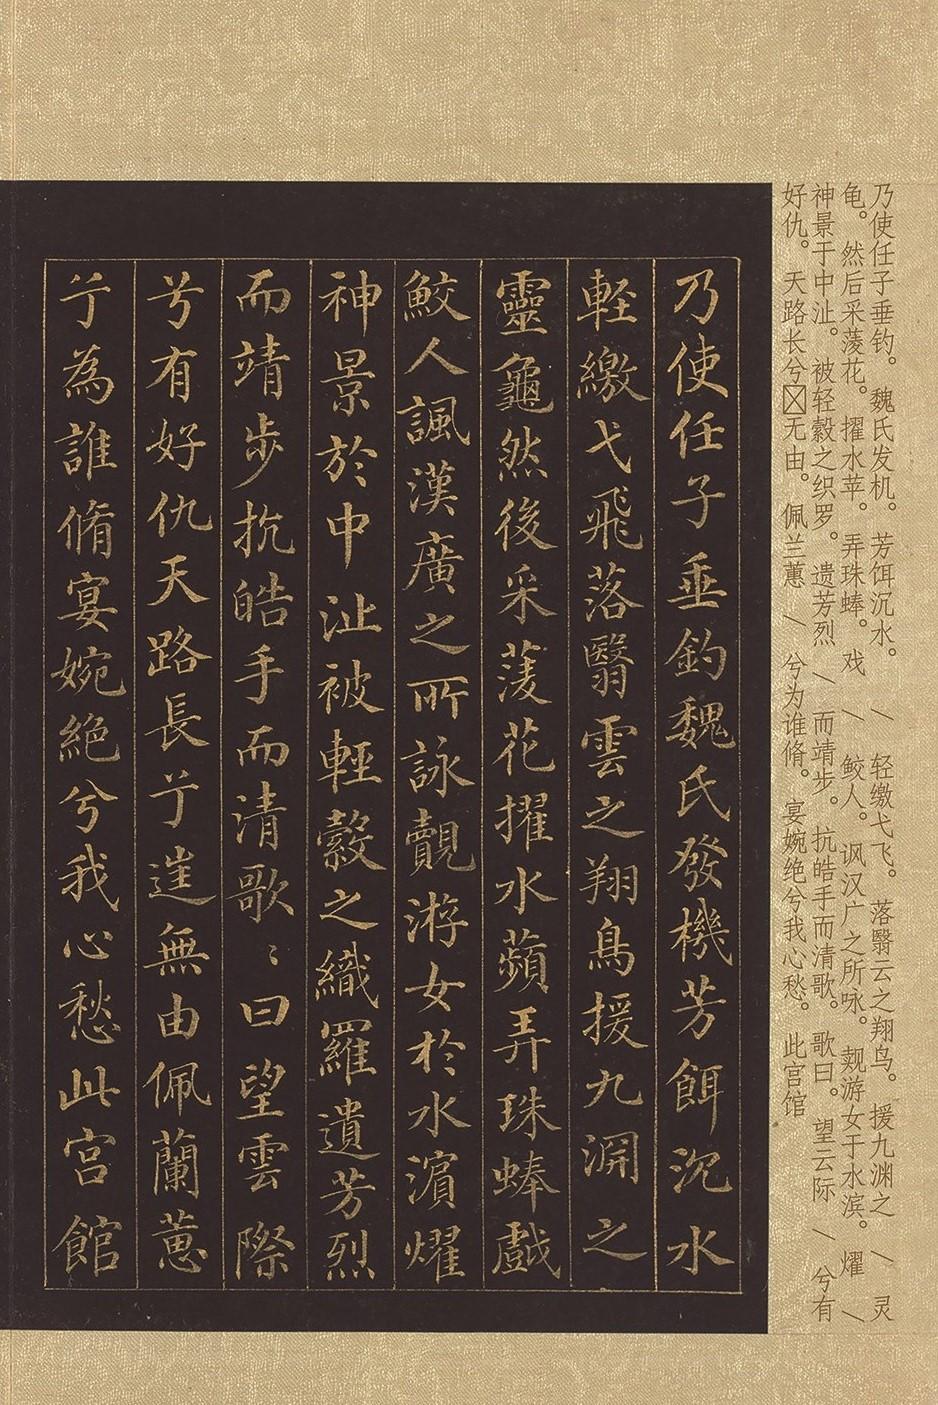 乃使任子垂钓。魏氏发机。芳饵沉水。/轻缴弋飞。落翳云之翔鸟。援九渊之/灵
龟。然后采蓤花。擢水苹。弄珠蜯。戏/鲛人。讽汉广之所咏。觌游女于水滨。燿/
神景于中沚。被轻縠之织罗。遗芳烈/而靖步。抗皓手而清歌。歌曰。望云际/兮有
好仇。天路长兮无由。佩兰蕙/兮为谁脩。宴婉绝兮我心愁。此官馆
乃使任子垂釣魏氏發機芳餌沉水
軽繳弋飛落翳雲之翔鳥援九渊之
靈龜然後采蓤花擢水蘋弄珠蜯戯
鮫人諷漢廣之所詠覿游女於水濵燿
神景於中沚被輕縠之織羅遺芳烈
而靖步抗皓手而清歌〻曰望雲際
兮有好仇天路長兮無由佩蘭蕙
兮為誰脩宴婉絕兮我心愁此宫館